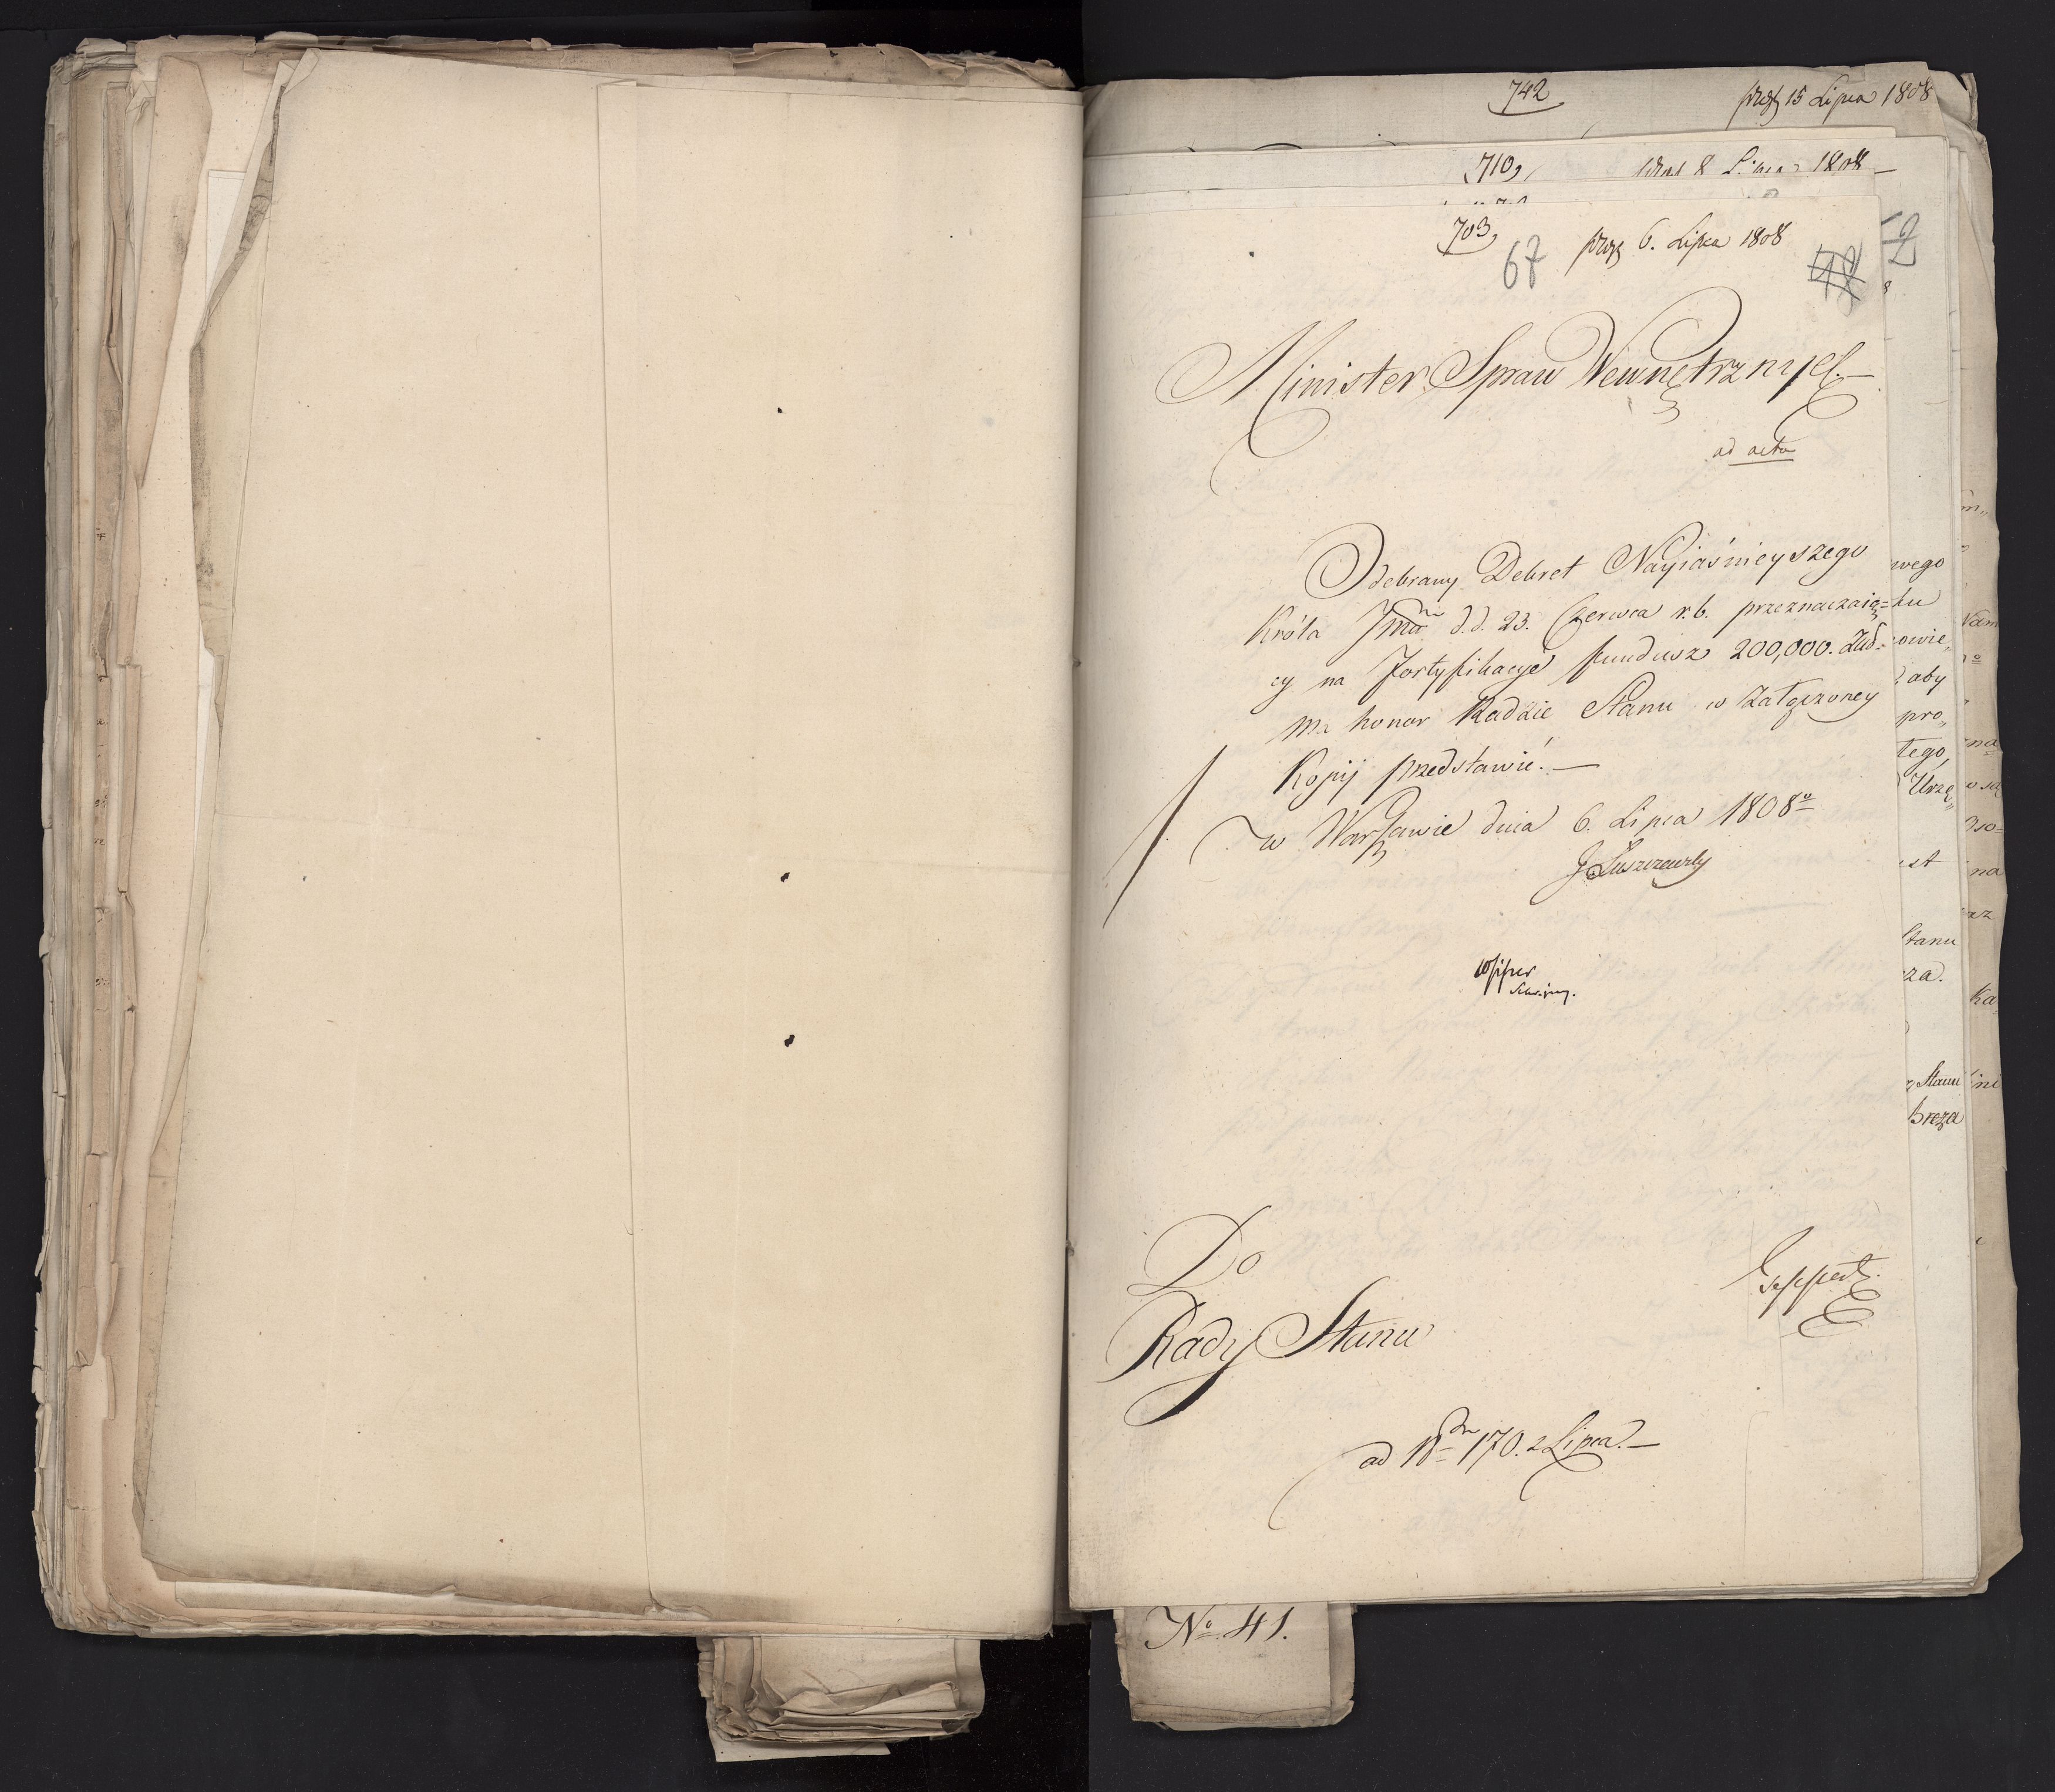 742
15 Lipca 1808
710,
8 1808 —
703,
67
6. Lipca 1808
Minister Spraw Wewnętrznych. —
ad acta
Odebrany Dekret Nayiaśnieyszego
Króla Jmci d.d. 23. Czerwca r.b. przeznaczaią=
cy na Fortyfikacye fundusz 200,000. Zło=
ma honor Radzie Stanu w załączoney
Kopij przedstawić. —
w Warszawie dnia 6. Lipca 1808º
J Łuszczewsky
Do
Rady Stanu
Geppert.
ad N 170. 2 Lipca. —
wego
aby
pro„
tego,
Urzę„
Stanu
za.
Stanu
Breza
na
Ka
Nº 41.